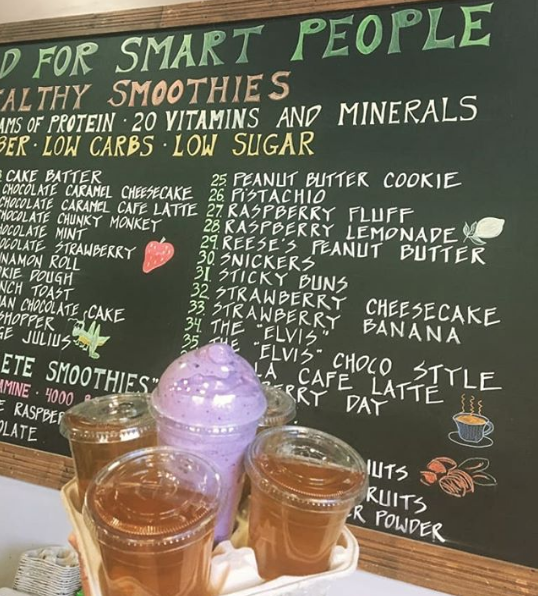 D FOR SMART PEOPLE
EALTHY SMOOTHIES
AMS OF PROTEIN · 20 VITAMINS AND MINERALS
BER · LOW CARBS · LOW SUGAR
CAKE BATTER
CHOCOLATE CARAMEL CHEESECAKE
CHOCOLATE CARAMEL CAFE LATTE
HOCOLATE CHUNKY MONKEY
HOCOLATE MINT
OCOLATE STRAWBERRY
NNAMON ROLL
OKIE DOUGH
NCH TOAST
MAN CHOCOLATE CAKE
SHOPPER
GE JULIUS
ETE SMOOTHIES"
AMINE · 4000
E RASPBER
OLATE
25 PEANUT BUTTER COOKIE
26 PISTACHIO
27 RASPBERRY FLUFF
28 RASPBERRY LEMONADE
29 REESE'S PEANUT BUTTER
30 SNICKERS
31 STICKY BUNS
32 STRAWBERRY CHEESECAKE
33 STRAWBERRY BANANA
34 THE "ELVIS"
35 THE "ELVIS" CHOCO STYLE
LA CAFE LATTE
ERRY DAY
NUTS
RUITS
R POWDER